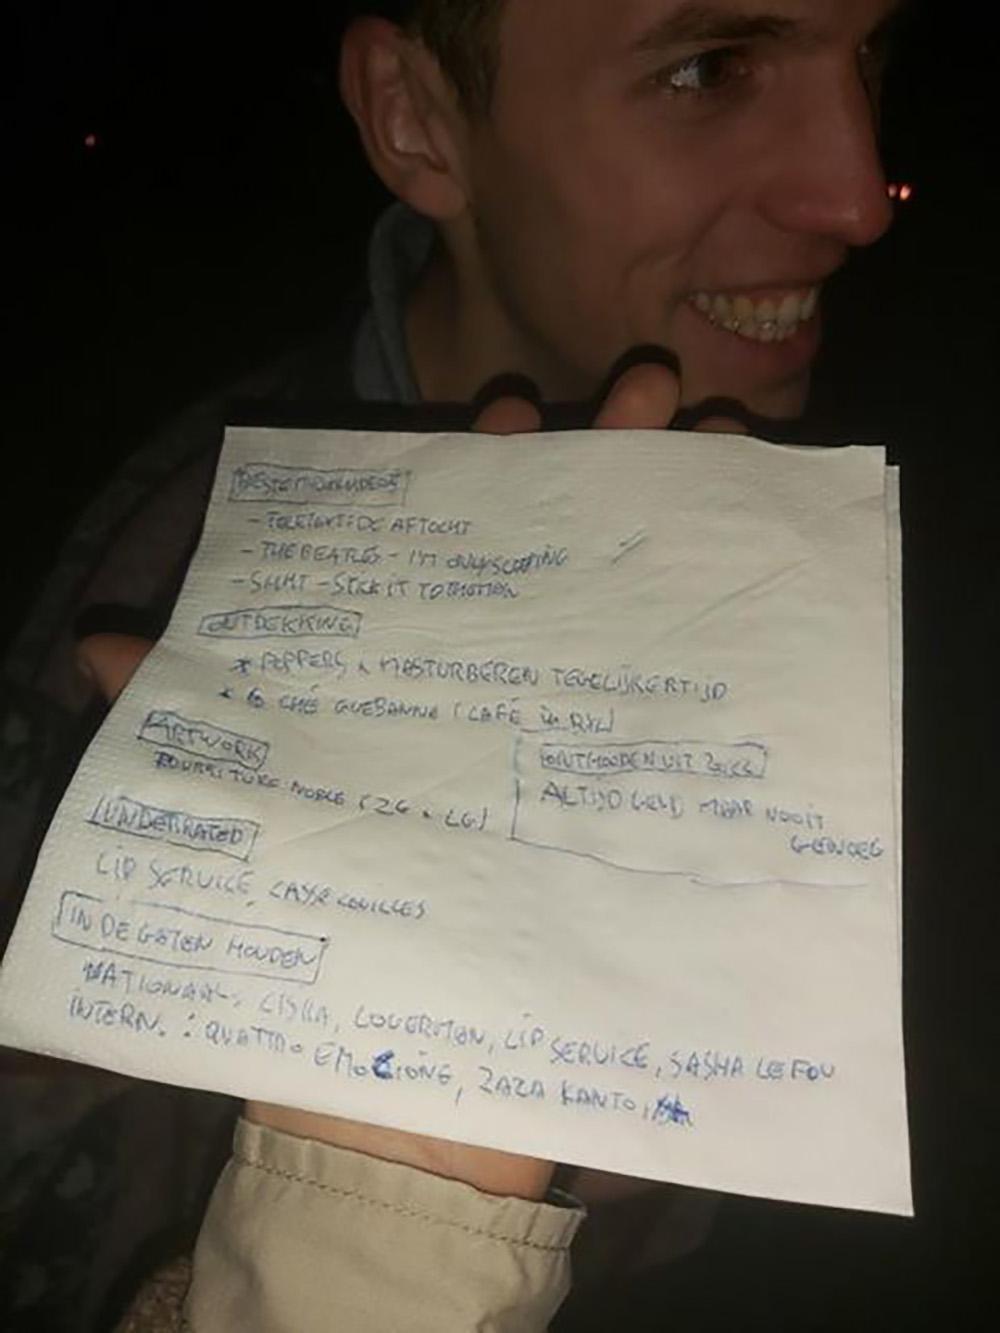 - THE BEATLES - I'M ONLY SLEEPING
- STICK IT TO
ONTDEKKING
* POPPERS & MASTURBEREN TEGELIJKERTIJD
* CHÉ GUEBANNA (CAFÉ in BXL)
ARTWORK
POURRITURE NOBLE (ZG + LG)
ONTHOUDEN UIT
ALTIJD GELD MAAR NOOIT
GENOEG
UNDERRATED
LIP SERVICE, CASSE COUILLES
IN DE GATEN HOUDEN
NATIONAAL: LISKA, LOVERMAN, LIP SERVICE, SASHA LE FOU
INTERN. : QUATTRO EMOZIONE, ZAZA KANTO,